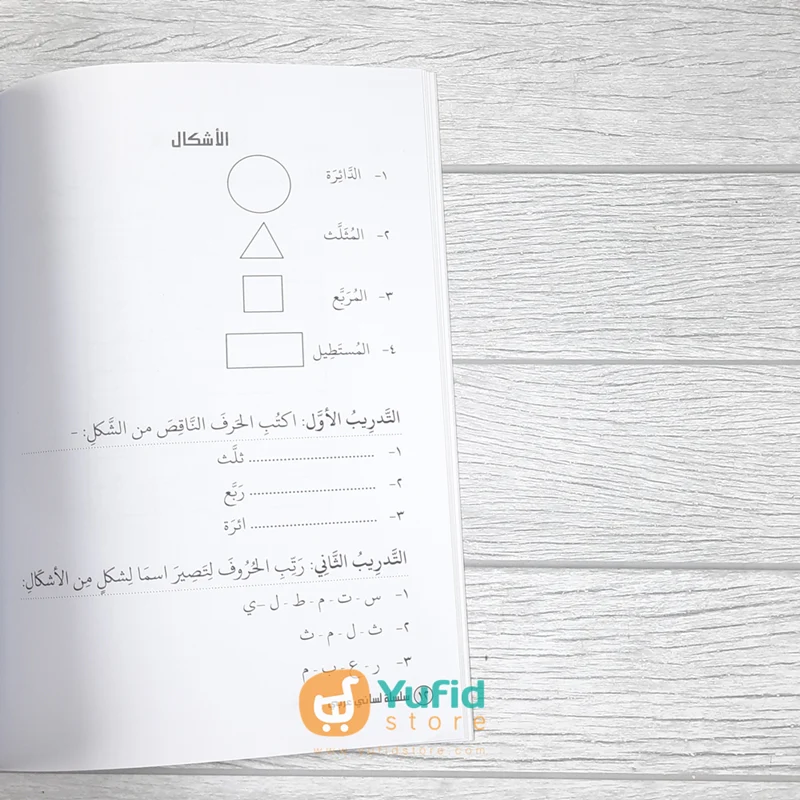 الأشكال
١- الدَّائِرَة
٢- المُثَلَّث
٣- المُرَبَّع
٤- المُستَطِيل
التَّدرِيبُ الأوَّل: اكتُبِ الحَرفَ النَّاقِصَ من الشَّكلِ: -
١- ................................ ثلَّث
٢- ................................ رَبَّع
٣- ................................ ائرَة
التَّدرِيبُ الثَّانِي: رَتِّبِ الحُرُوفَ لِتَصِيرَ اسمَا لِشكلٍ مِن الأشكَالِ:
١- س - ت - م - ط - ل -ي
٢- ث - ل - م - ث
٣- ر - ع - ب - م
١٢ سلسلة لساني عربي
Yufid
store
www.yufidstore.com